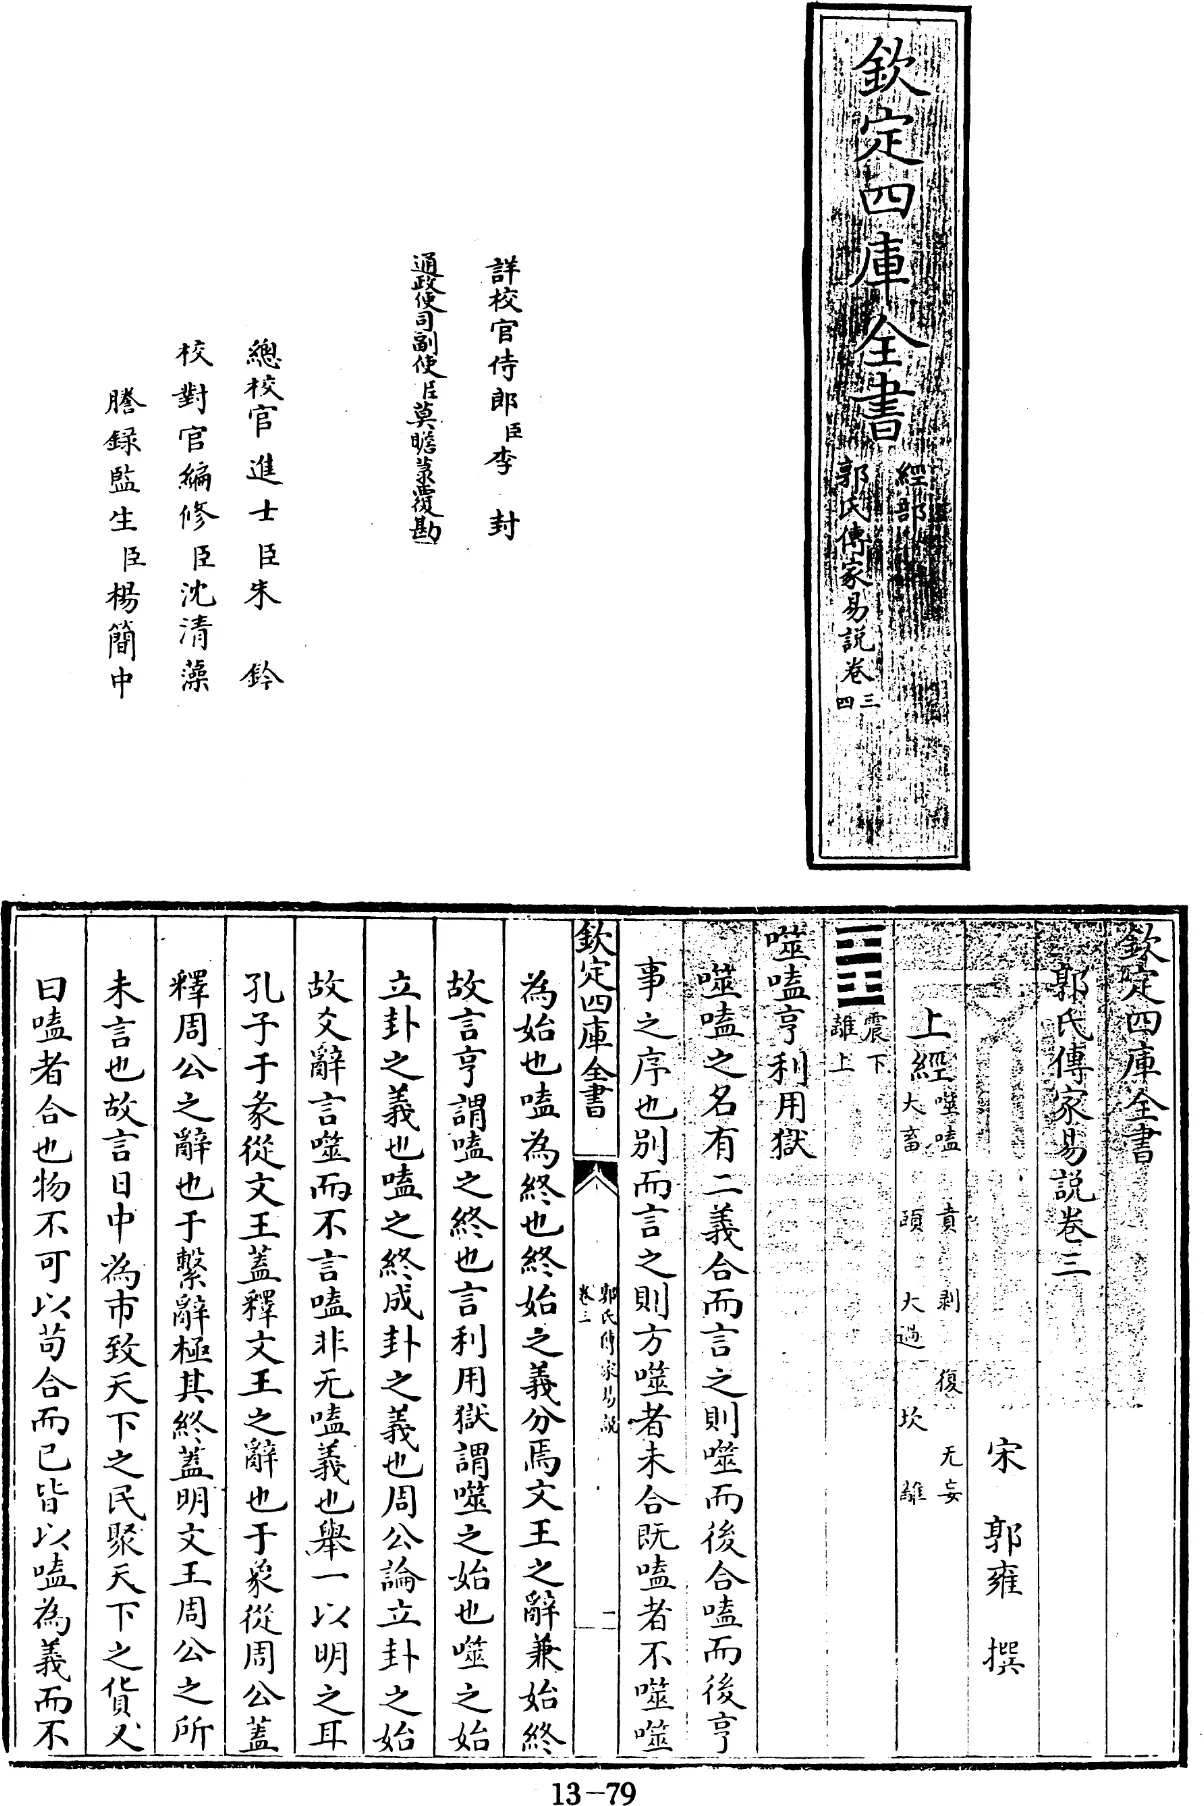 欽定四庫全書
經部
郭氏傳家易說卷三
四
詳校官侍郎臣李封
通政使司副使臣莫瞻菉覆勘
總校官進士臣朱鈐
校對官編修臣沈清藻
謄録監生臣楊簡中
欽定四庫全書
郭氏傳家易說卷三
宋 郭雍 撰
上經噬嗑 賁 剥 復 无妄
大畜 頤 大過 坎 離
䷔震下
離上
噬嗑亨利用獄
噬嗑之名有二義合而言之則噬而後合嗑而後亨
事之序也别而言之則方噬者未合既嗑者不噬噬
欽定四庫全書
郭氏傳家易說
卷三
二
為始也嗑為終也終始之義分焉文王之辭兼始終
故言亨謂嗑之終也言利用獄謂噬之始也噬之始
立卦之義也嗑之終成卦之義也周公論立卦之始
故爻辭言噬而不言嗑非无嗑義也舉一以明之耳
孔子于彖從文王蓋釋文王之辭也于象從周公蓋
釋周公之辭也于繫辭極其終蓋明文王周公之所
未言也故言日中為市致天下之民聚天下之貨又
曰嗑者合也物不可以苟合而已皆以嗑為義而不
13-79